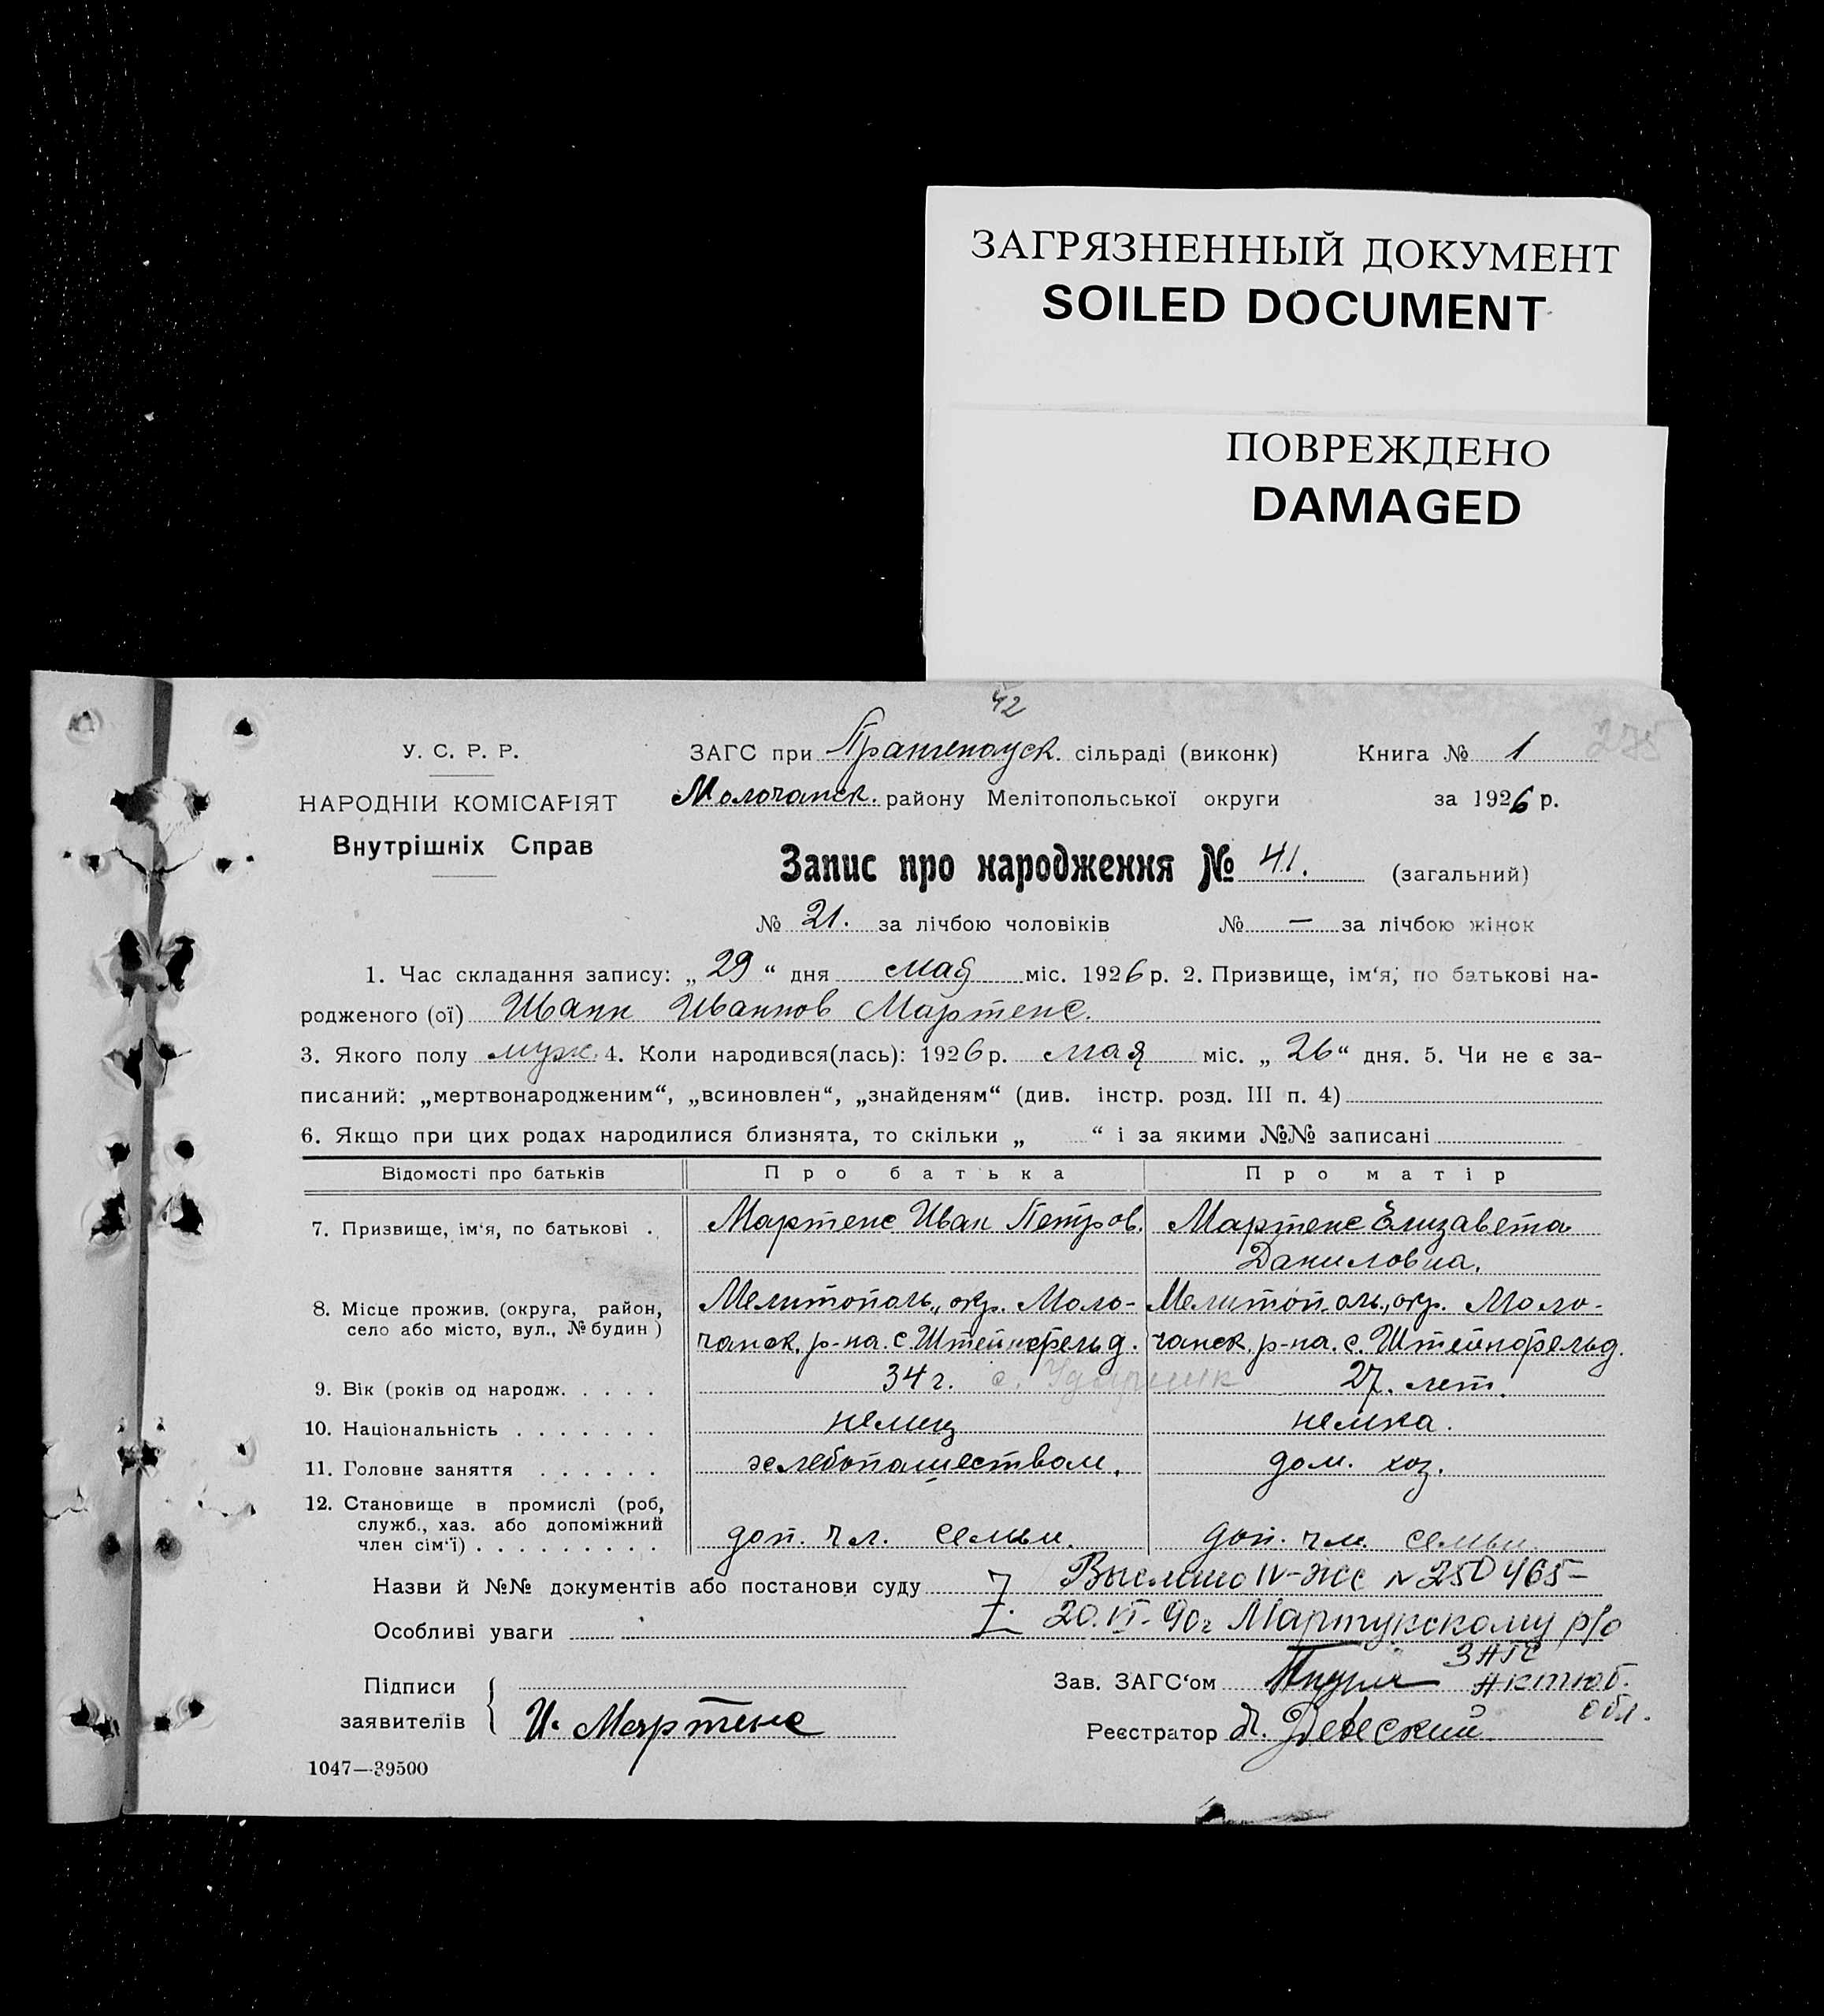 ЗАГРЯЗНЕННЫЙ ДОКУМЕНТ
SOILED DOCUMENT
ПОВРЕЖДЕНО
DAMAGED
42
У. С. Р. Р.
НАРОДНІЙ КОМІСАРІЯТ
Внутрішніх Справ
ЗАГС при Прангенауск. сільраді (виконк) Книга № 1 275
Молочанск. району Мелітопольської округи за 1926 р.
Запис про народження № 41. (загальний)
№ 21. за лічбою чоловіків № — за лічбою жінок
1. Час складання запису: „ 29 “ дня мая міс. 1926 р. 2. Призвище, ім‘я, по батькові на-
родженого (ої) Иванн Иваннов Мартенс.
3. Якого полу муж. 4. Коли народився(лась): 1926 р. мая міс. „ 26 “ дня. 5. Чи не є за-
писаний: „мертвонародженим“, „всиновлен“, „знайденям“ (див. інстр. розд. III п. 4)
6. Якщо при цих родах народилися близнята, то скільки „ “ і за якими №№ записані
Відомості про батьків Про батька Про матір
7. Призвище, ім‘я, по батькові . Мартенс Иван Петров. Мартенс Елизавета
Даниловна.
8. Місце прожив. (округа, район, село або місто, вул., № будин ) Мелитополь., окр. Моло- Мелитополь., окр. Моло-
чанск. р-на. с. Штейнфельд. чанск. р-на. с. Штейнфельд.
9. Вік (років од народж. . . . . 34 г. с. Ударник 27. лет.
10. Національність . . . . . . . немец немка.
11. Головне заняття . . . . . . хлебопашеством. дом. хоз.
12. Становище в промислі (роб, служб., хаз. або допоміжний член сім‘ї) . . . . . . . . . доп. чл. семьи. доп. чл. семьи.
Назви й №№ документів або постанови суду Выслано IV-ЖС № 250465-
Особливі уваги 20.VI-90г Мартукскому р/о
ЗАГС
Актюб.
обл.
Підписи
заявителів И. Мартенс
Зав. ЗАГС‘ом
Реєстратор
1047—39500